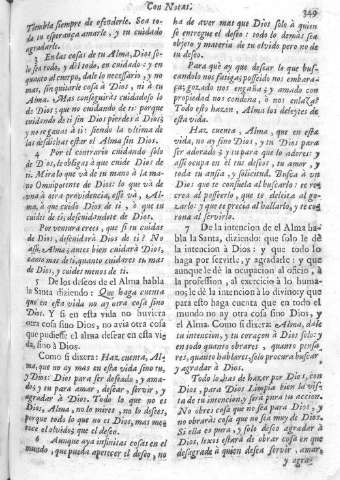 Con Notas.
349
Tiembla siempre de ofenderle. Sea to-
da tu esperança amarle, y tu cuidado
agradarle.
3 En las cosas de tu Alma, Dios so-
lo sea todo, y del todo, en cuidado: y en
quanto al cuerpo, dale lo necessario, y no
mas, sin quitarle cosa à Dios, ni à tu
Alma. Mas conseguiràs cuidadoso lo
de Dios; que no cuidando de ti: porque
cuidando de ti sin Dios pierdes à Dios;
y no reganas à ti: siendo la ultima de
las desdichas estar el Alma sin Dios.
4 Por el contrario cuidando solo
de Dios, le obligas à que cuide Dios de
ti. Mira lo que và de tu mano à la ma-
no Omnipotente de Dios: lo que và de
una à otra providencia, esse và, Al-
ma, à que cuide Dios de ti, ò que tu
cuides de ti; defendiendote de Dios.
Por ventura crees, que si tu cuidas
de Dios, descuidarà Dios de ti? No
assi, Alma; antes bien cuidarà Dios,
tanto mas de ti, quanto cuidares tu mas
de Dios, y cuides menos de ti.
5 De los deseos de el Alma habla
la Santa diziendo: Que haga cuenta
que en esta vida no ay otra cosa sino
Dios. Y si en esta vida no huviera
otra cosa sino Dios, no avia otra cosa
que pudiesse el alma desear en esta vi-
da, sino à Dios.
Como si dixera: Haz cuenta, Al-
ma, que no ay mas en esta vida sino tu,
y Dios: Dios para ser deseado, y ama-
do; y tu para amar, desear, servir, y
agradar à Dios. Todo lo que no es
Dios, Alma, no lo mires, no lo desees,
porque todo lo que no es Dios, mas me-
rece el olvido; que el deseo.
6 Aunque aya infinitas cosas en el
mundo, que pueda apetecer el deseo, no
ha de aver mas que Dios solo à quien
se entregue el deseo: todo lo demàs sea
objeto y materia de tu olvido pero no de
tu deseo.
Para què ay que desear lo que bus-
candolo nos fatiga; poseido nos embara-
ça; gozado nos engaña; y amado con
propiedad nos condena, ò nos enlaza?
Todo esto hazen, Alma los deleytes de
esta vida.
Haz cuenta, Alma, que en esta
vida, no ay sino Dios, y tu Dios para
ser adorado; y tu para que lo adores y
assi ocupa en el tus deseos, tu amor, y
toda tu ansia, y solicitud. Busca à un
Dios que te consuela al buscarlo: te re-
crea al poseerlo, que te deleita al go-
zarlo: y que te precia al hallarlo, y te co-
rona al servirlo.
7 De la intencion de el Alma ha-
bla la Santa, diziendo: que solo le dè
la intencion à Dios: y que todo lo
haga por servirle, y agradarle: y que
aunque le dè la ocupacion al oficio, à
la profession, al exercicio à lo huma-
nos; le dè la intencion à lo divino: y que
para esto haga cuenta que en todo el
mundo no ay otra cosa sino Dios, y
el Alma. Como si dixera: Alma, dale
tu intencion, y tu coraçon à Dios solo: y
en todo quanto obrares, quanto pensa-
res, quanto hablares, solo procura buscar
y agradar à Dios.
Todo lo has de hazer por Dios, con
Dios, para Dios Limpia bien la vis-
ta de tu intencion, y serà pura tu accion.
No obres cosa que no sea para Dios, y
no obraràs cosa que no sea muy de Dios.
Si ella es pura, y solo deseo agradar à
Dios, lexos estarà de obrar cosa en que
desagrade à quien desea servir, amar,
y agra-